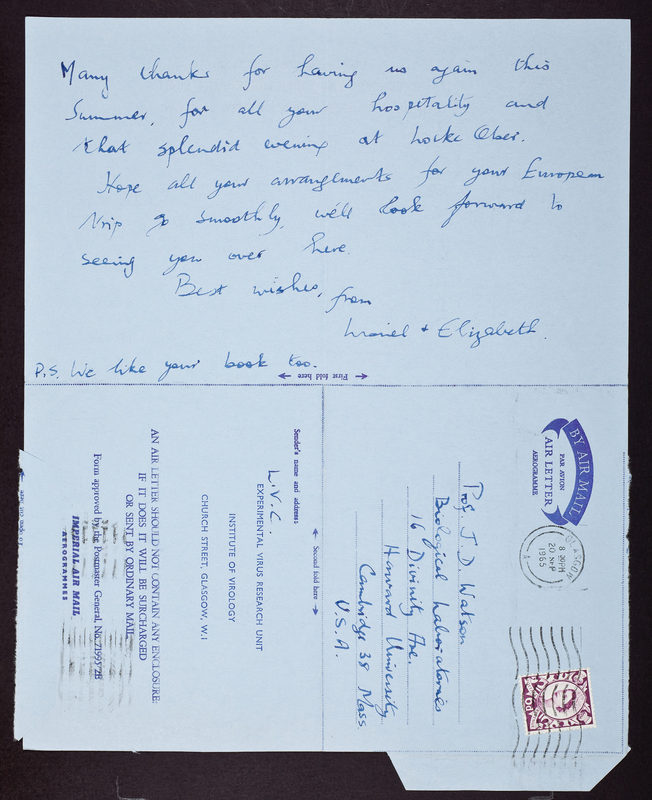 Many thanks for having us again this
Summer, for all your hospitality and
that splendid evening at Locke Ober.
Hope all your arrangements for your European
trip go smoothly, we'll look forward to
seeing you over here.
Best wishes, from
Lionel + Elizabeth.
P.S. We like your book too.
← First fold here →
BY AIR MAIL
PAR AVION
AIR LETTER
AEROGRAMME
GLASGOW
8 PM
20 SEP
1965
Prof. J. D. Watson
Biological Laboratories
16 Divinity Ave.
Harvard University
Cambridge 38 Mass
U.S.A.
← Second fold here →
Sender's name and address:
L.V.C.
EXPERIMENTAL VIRUS RESEARCH UNIT
INSTITUTE OF VIROLOGY
CHURCH STREET, GLASGOW, W.1
AN AIR LETTER SHOULD NOT CONTAIN ANY ENCLOSURE;
IF IT DOES IT WILL BE SURCHARGED
OR SENT BY ORDINARY MAIL.
Form approved by the Postmaster General, No.
IMPERIAL AIR MAIL
AEROGRAMMES